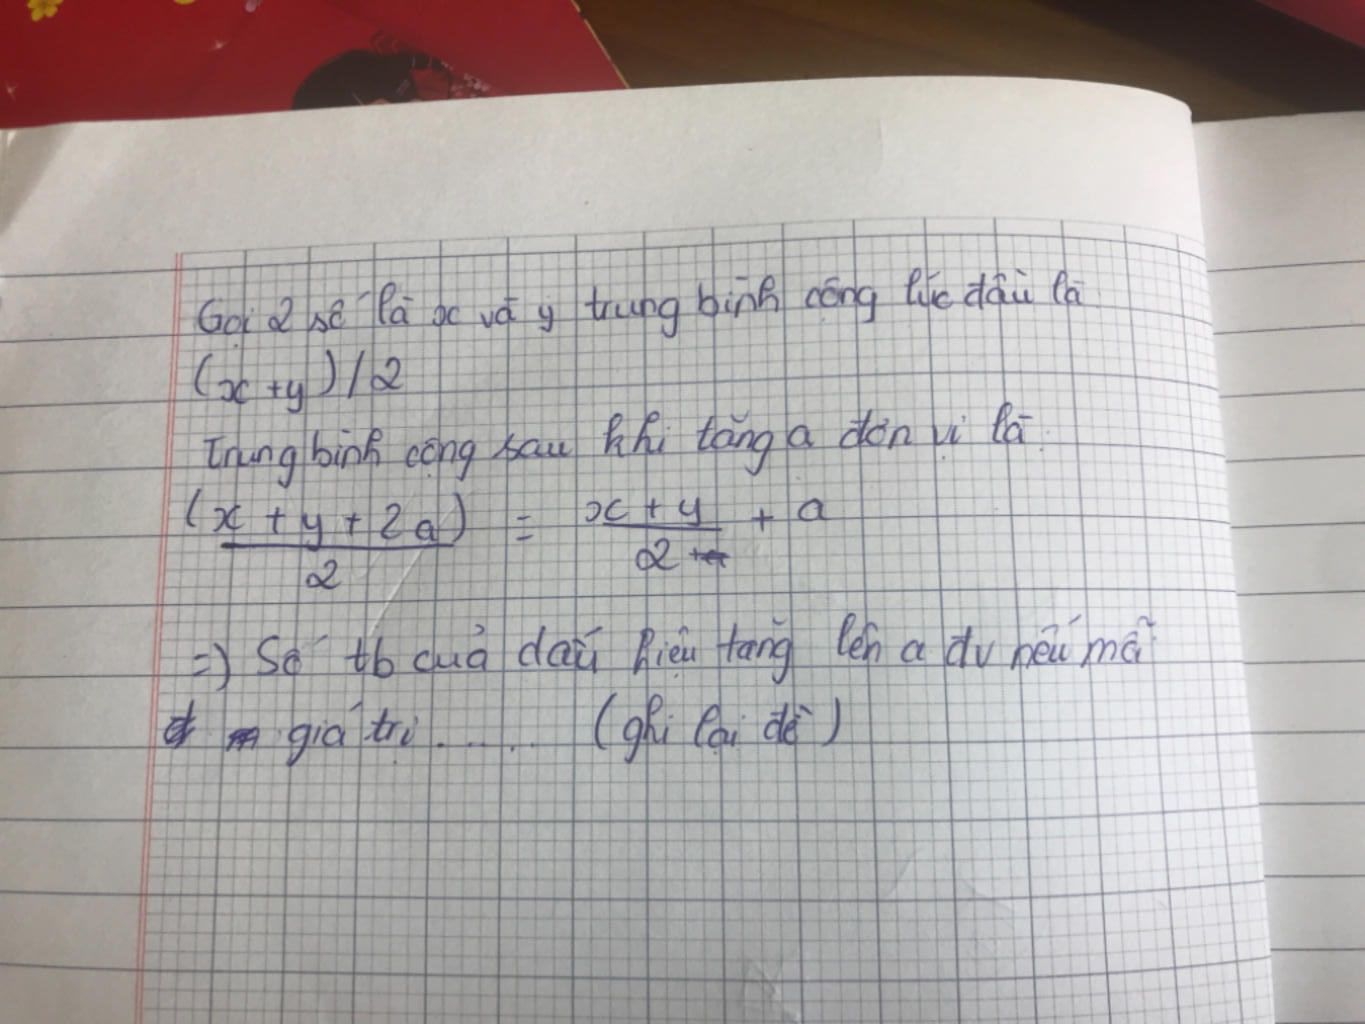 Gọi 2 số là x và y trung bình cộng lúc đầu là
(x+y)/2
Trung bình cộng sau khi tăng a đơn vị là
(x + y + 2a)/2 = (x + y)/2 + a
=) Số tb của dấu hiệu tăng lên a đv nếu mỗi
giá trị ..... (ghi lại đề)